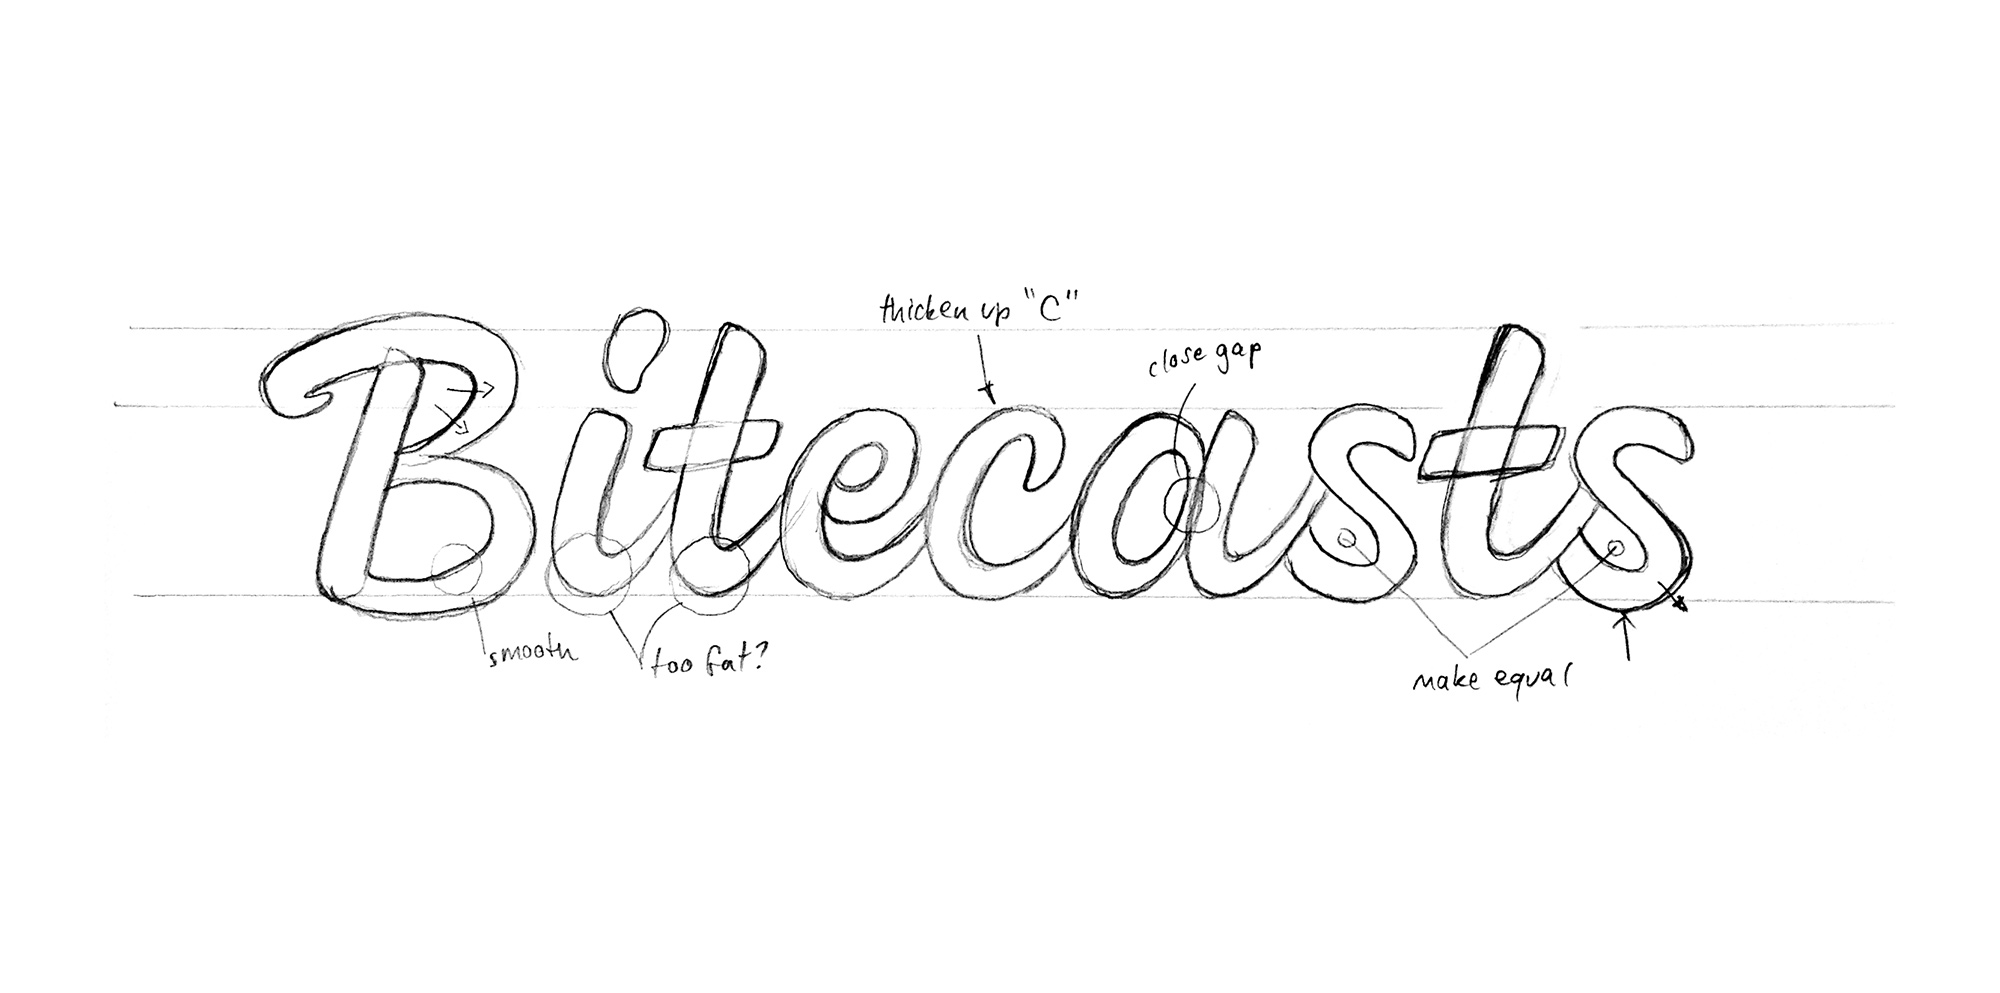 thicken up "C"
close gap
Bitecasts
smooth
too fat?
make equal